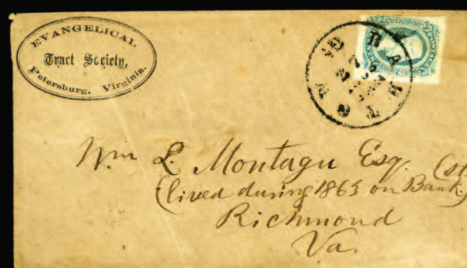 EVANGELICAL
Tract Society,
Petersburg, Virginia.
Wm L. Montagu Esq.
(lived during 1863 on Bank
Richmond
Va.